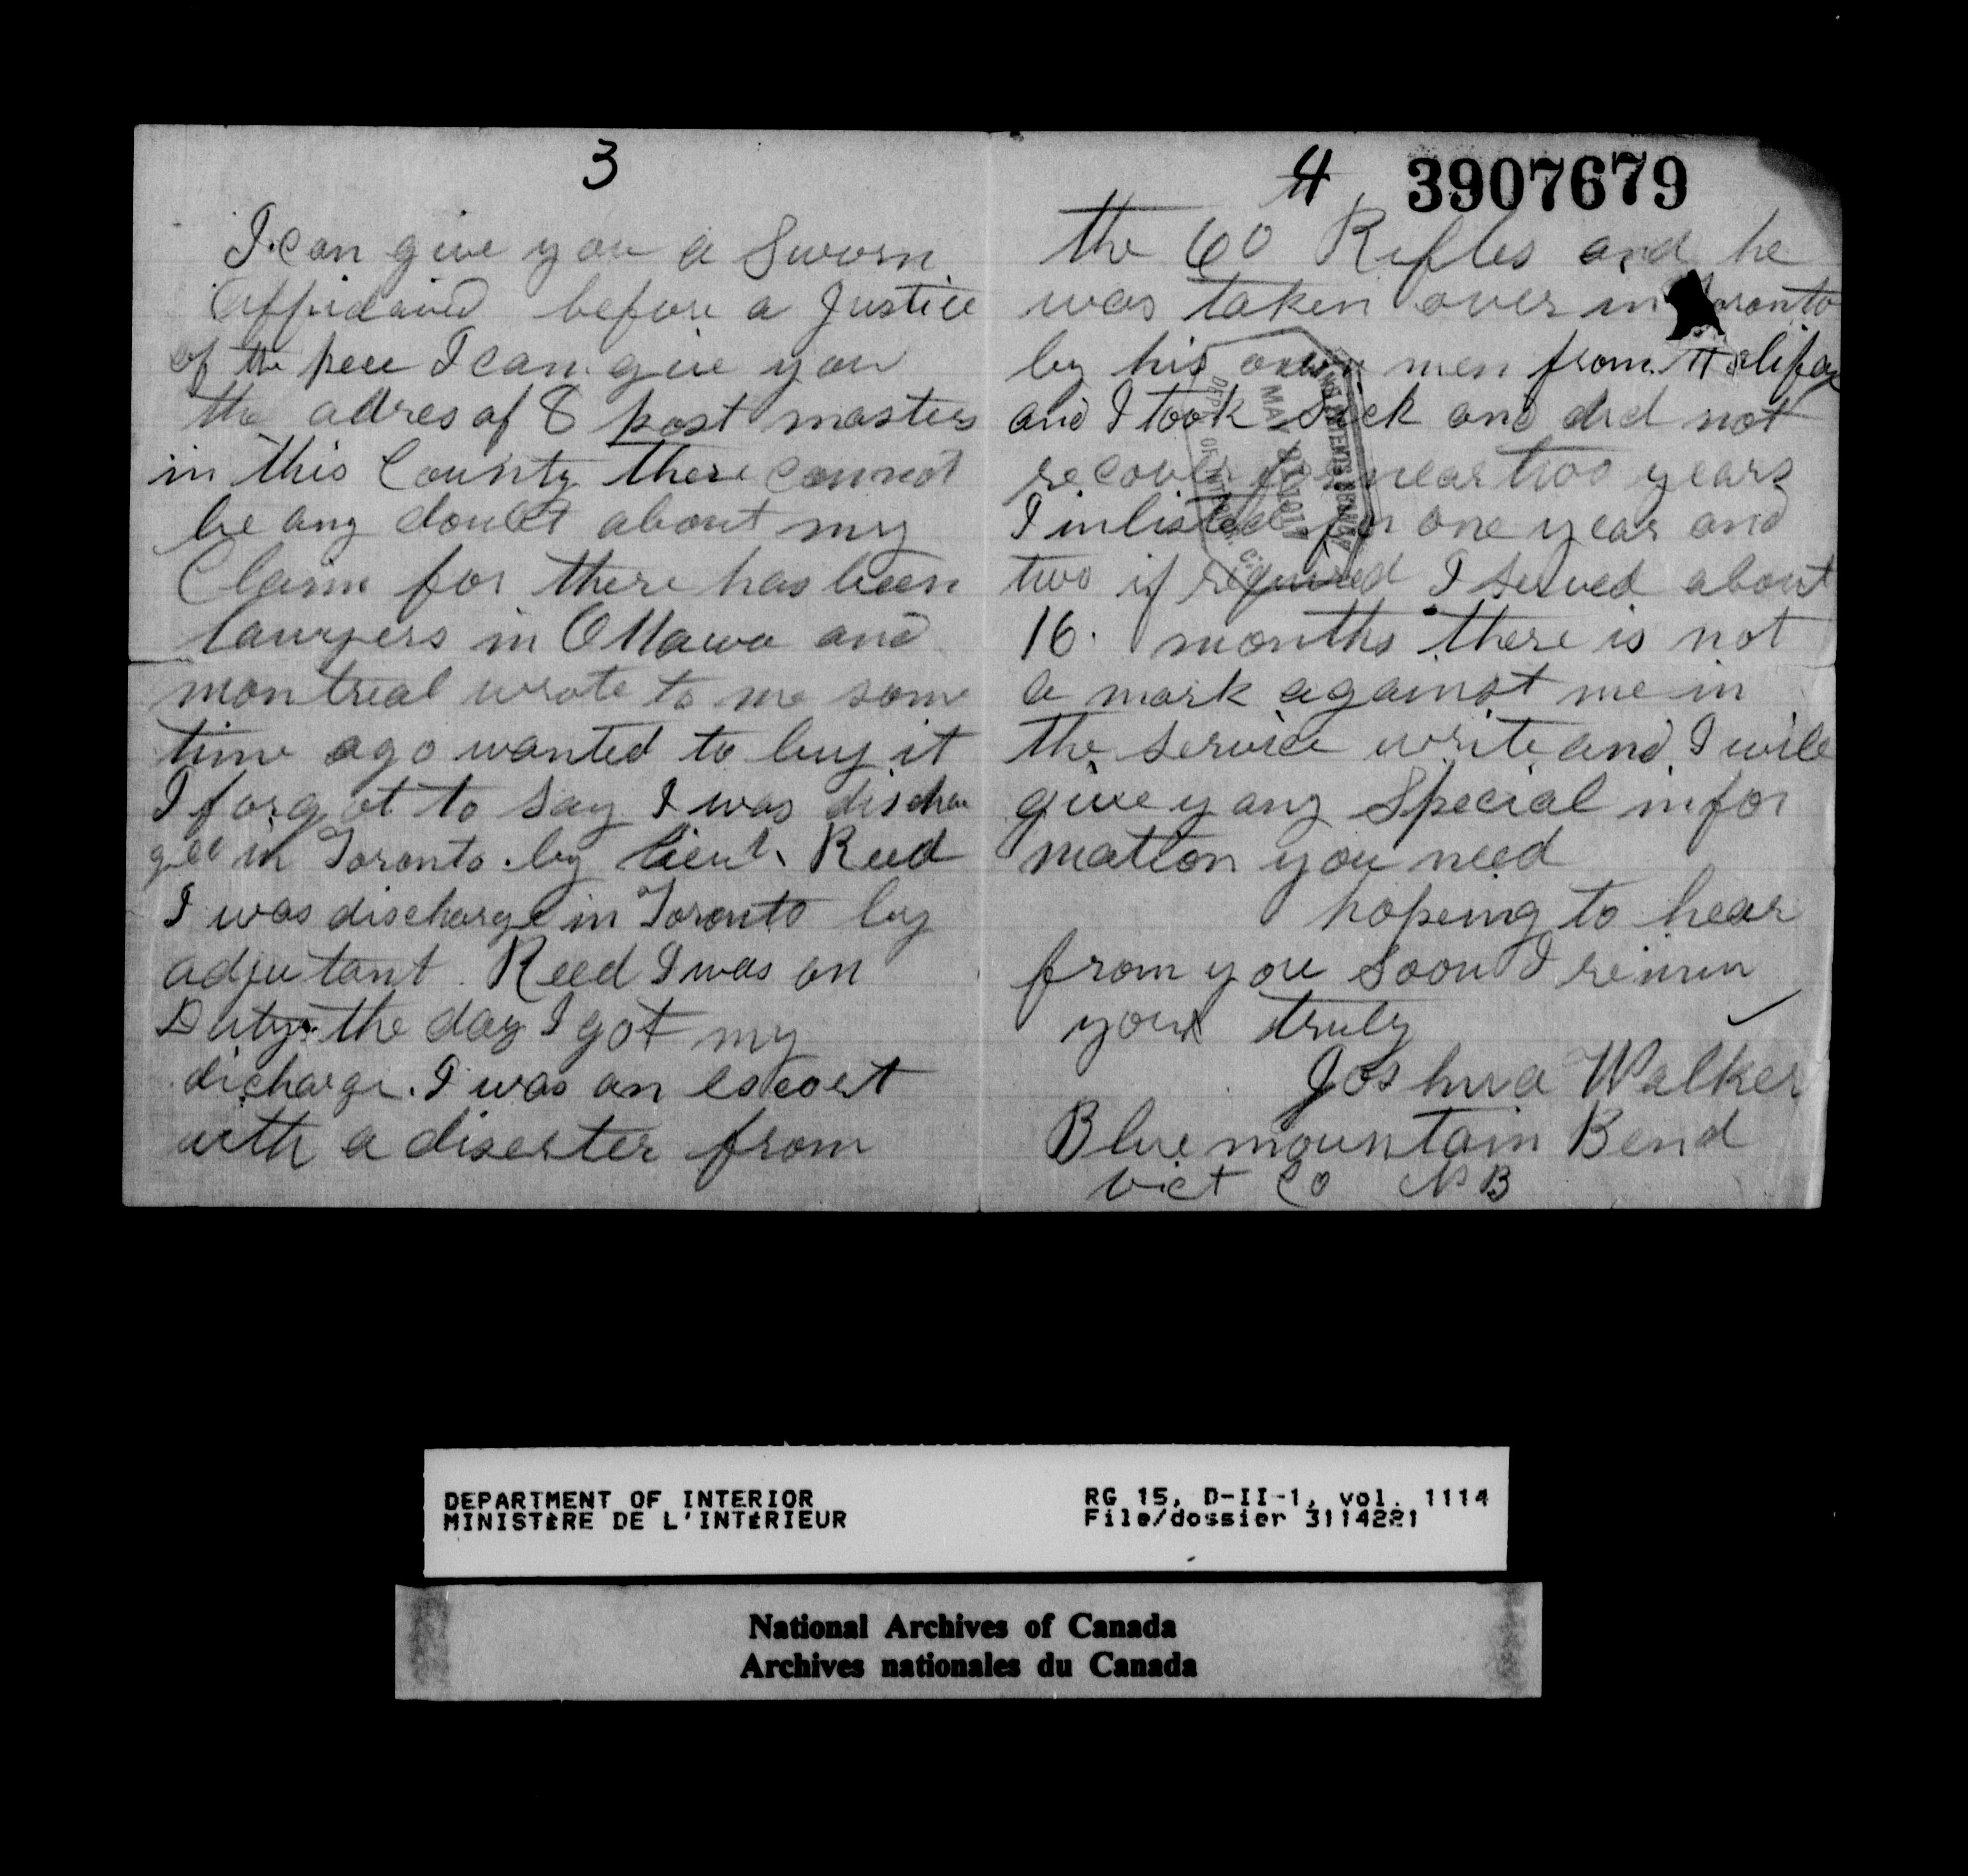 3
I can give you a Sworn
Affidavid before a Justice
of the peee I can give you
the adres of 8 post masters
in this County there cannot
be any doubt about my
Claim for there has been
lawyers in Ottawa and
montreal wrote to me some
time ago wanted to buy it
I forgot to say I was dischar
ged in Toronto by Lieut. Reed
I was discharge in Toronto by
adjutant Reed I was on
Duty the day I got my
dicharge. I was on escort
with a diserter from
4 3907679
the 60 Rifles and he
was taken over in Toronto
by his own men from Halifax
and I took Sick and did not
recover for near two years
I inlisted for one year and
two if required I served about
16. months there is not
a mark against me in
the service write and I will
give y any Special infor
mation you need
hopeing to hear
from you soon I remn
your truly
Joshua Walker
Blue mountain Bend
Vict Co N B
LANDS PATENTS BRANCH
MAY 1917
DEPT. OF INTERIOR
DEPARTMENT OF INTERIOR
MINISTÈRE DE L'INTÉRIEUR
RG 15, D-II-1, vol. 1114
File/dossier 3114221
National Archives of Canada
Archives nationales du Canada